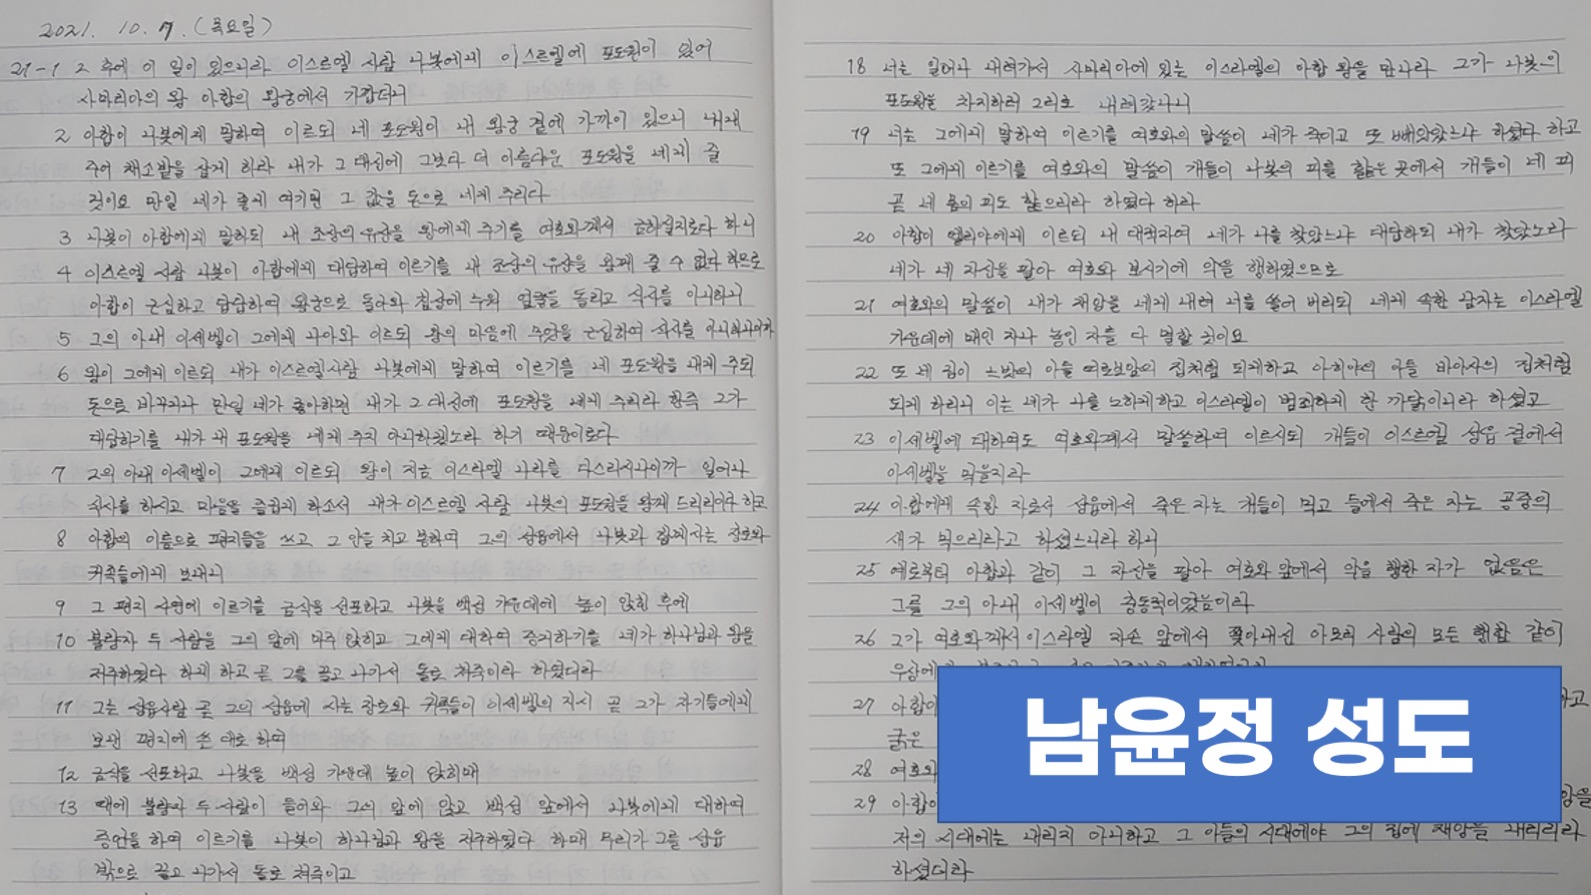 2021. 10. 7. (목요일)
21-1 그 후에 이 일이 있으니라 이스르엘 사람 나봇에게 이스르엘에 포도원이 있어
사마리아의 왕 아합의 왕궁에서 가깝더니
2 아합이 나봇에게 말하여 이르되 네 포도원이 내 왕궁 곁에 가까이 있으니 내게
주어 채소밭을 삼게 하라 내가 그 대신에 그보다 더 아름다운 포도원을 네게 줄
것이요 만일 네가 좋게 여기면 그 값을 돈으로 네게 주리라
3 나봇이 아합에게 말하되 내 조상의 유산을 왕에게 주기를 여호와께서 금하실지로다 하니
4 이스르엘 사람 나봇이 아합에게 대답하여 이르기를 내 조상의 유산을 왕께 줄 수 없다 하므로
아합이 근심하고 답답하여 왕궁으로 돌아와 침상에 누워 얼굴을 돌리고 식사를 아니하니
5 그의 아내 이세벨이 그에게 나아와 이르되 왕의 마음에 무엇을 근심하여 식사를 아니하나이까
6 왕이 그에게 이르되 내가 이스르엘 사람 나봇에게 말하여 이르기를 네 포도원을 내게 주되
돈으로 바꾸거나 만일 네가 좋아하면 내가 그 대신에 포도원을 네게 주리라 한즉 그가
대답하기를 내가 내 포도원을 네게 주지 아니하겠노라 하기 때문이로다
7 그의 아내 이세벨이 그에게 이르되 왕이 지금 이스라엘 나라를 다스리시나이까 일어나
식사를 하시고 마음을 즐겁게 하소서 내가 이스르엘 사람 나봇의 포도원을 왕께 드리리이다 하고
8 아합의 이름으로 편지들을 쓰고 그 인을 치고 봉하여 그의 성읍에서 나봇과 함께 사는 장로와
귀족들에게 보내니
9 그 편지 사연에 이르기를 금식을 선포하고 나봇을 백성 가운데에 높이 앉힌 후에
10 불량자 두 사람을 그의 앞에 마주 앉히고 그에게 대하여 증거하기를 네가 하나님과 왕을
저주하였다 하게 하고 곧 그를 끌고 나가서 돌로 쳐죽이라 하였더라
11 그는 성읍사람 곧 그의 성읍에 사는 장로와 귀족들이 이세벨의 지시 곧 그가 자기들에게
보낸 편지에 쓴 대로 하여
12 금식을 선포하고 나봇을 백성 가운데 높이 앉히매
13 때에 불량자 두 사람이 들어와 그의 앞에 앉고 백성 앞에서 나봇에게 대하여
증언을 하여 이르기를 나봇이 하나님과 왕을 저주하였다 하매 무리가 그를 성읍
밖으로 끌고 나가서 돌로 쳐죽이고
18 너는 일어나 내려가서 사마리아에 있는 이스라엘의 아합 왕을 만나라 그가 나봇의
포도원을 차지하러 그리로 내려갔나니
19 너는 그에게 말하여 이르기를 여호와의 말씀이 네가 죽이고 또 빼앗았느냐 하셨다 하고
또 그에게 이르기를 여호와의 말씀이 개들이 나봇의 피를 핥은 곳에서 개들이 네 피
곧 네 몸의 피도 핥으리라 하였다 하라
20 아합이 엘리야에게 이르되 내 대적자여 네가 나를 찾았느냐 대답하되 내가 찾았노라
네가 네 자신을 팔아 여호와 보시기에 악을 행하였으므로
21 여호와의 말씀이 내가 재앙을 네게 내려 너를 쓸어 버리되 네게 속한 남자는 이스라엘
가운데에 매인 자나 놓인 자를 다 멸할 것이요
22 또 네 집이 느밧의 아들 여로보암의 집처럼 되게하고 아히야의 아들 바아사의 집처럼
되게 하리니 이는 네가 나를 노하게하고 이스라엘이 범죄하게 한 까닭이니라 하셨고
23 이세벨에 대하여도 여호와께서 말씀하여 이르시되 개들이 이스르엘 성읍 곁에서
이세벨을 먹을지라
24 아합에게 속한 자로서 성읍에서 죽은 자는 개들이 먹고 들에서 죽은 자는 공중의
새가 먹으리라고 하셨느니라 하니
25 예로부터 아합과 같이 그 자신을 팔아 여호와 앞에서 악을 행한 자가 없음은
그를 그의 아내 이세벨이 충동하였음이라
26 그가 여호와께서 이스라엘 자손 앞에서 쫓아내신 아모리 사람의 모든 행함 같이
우상에게
27 아합이
굵은
28 여호와
29 아합이
남윤정 성도
저의 시대에는 내리지 아니하고 그 아들의 시대에야 그의 집에 재앙을 내리리라
하셨더라